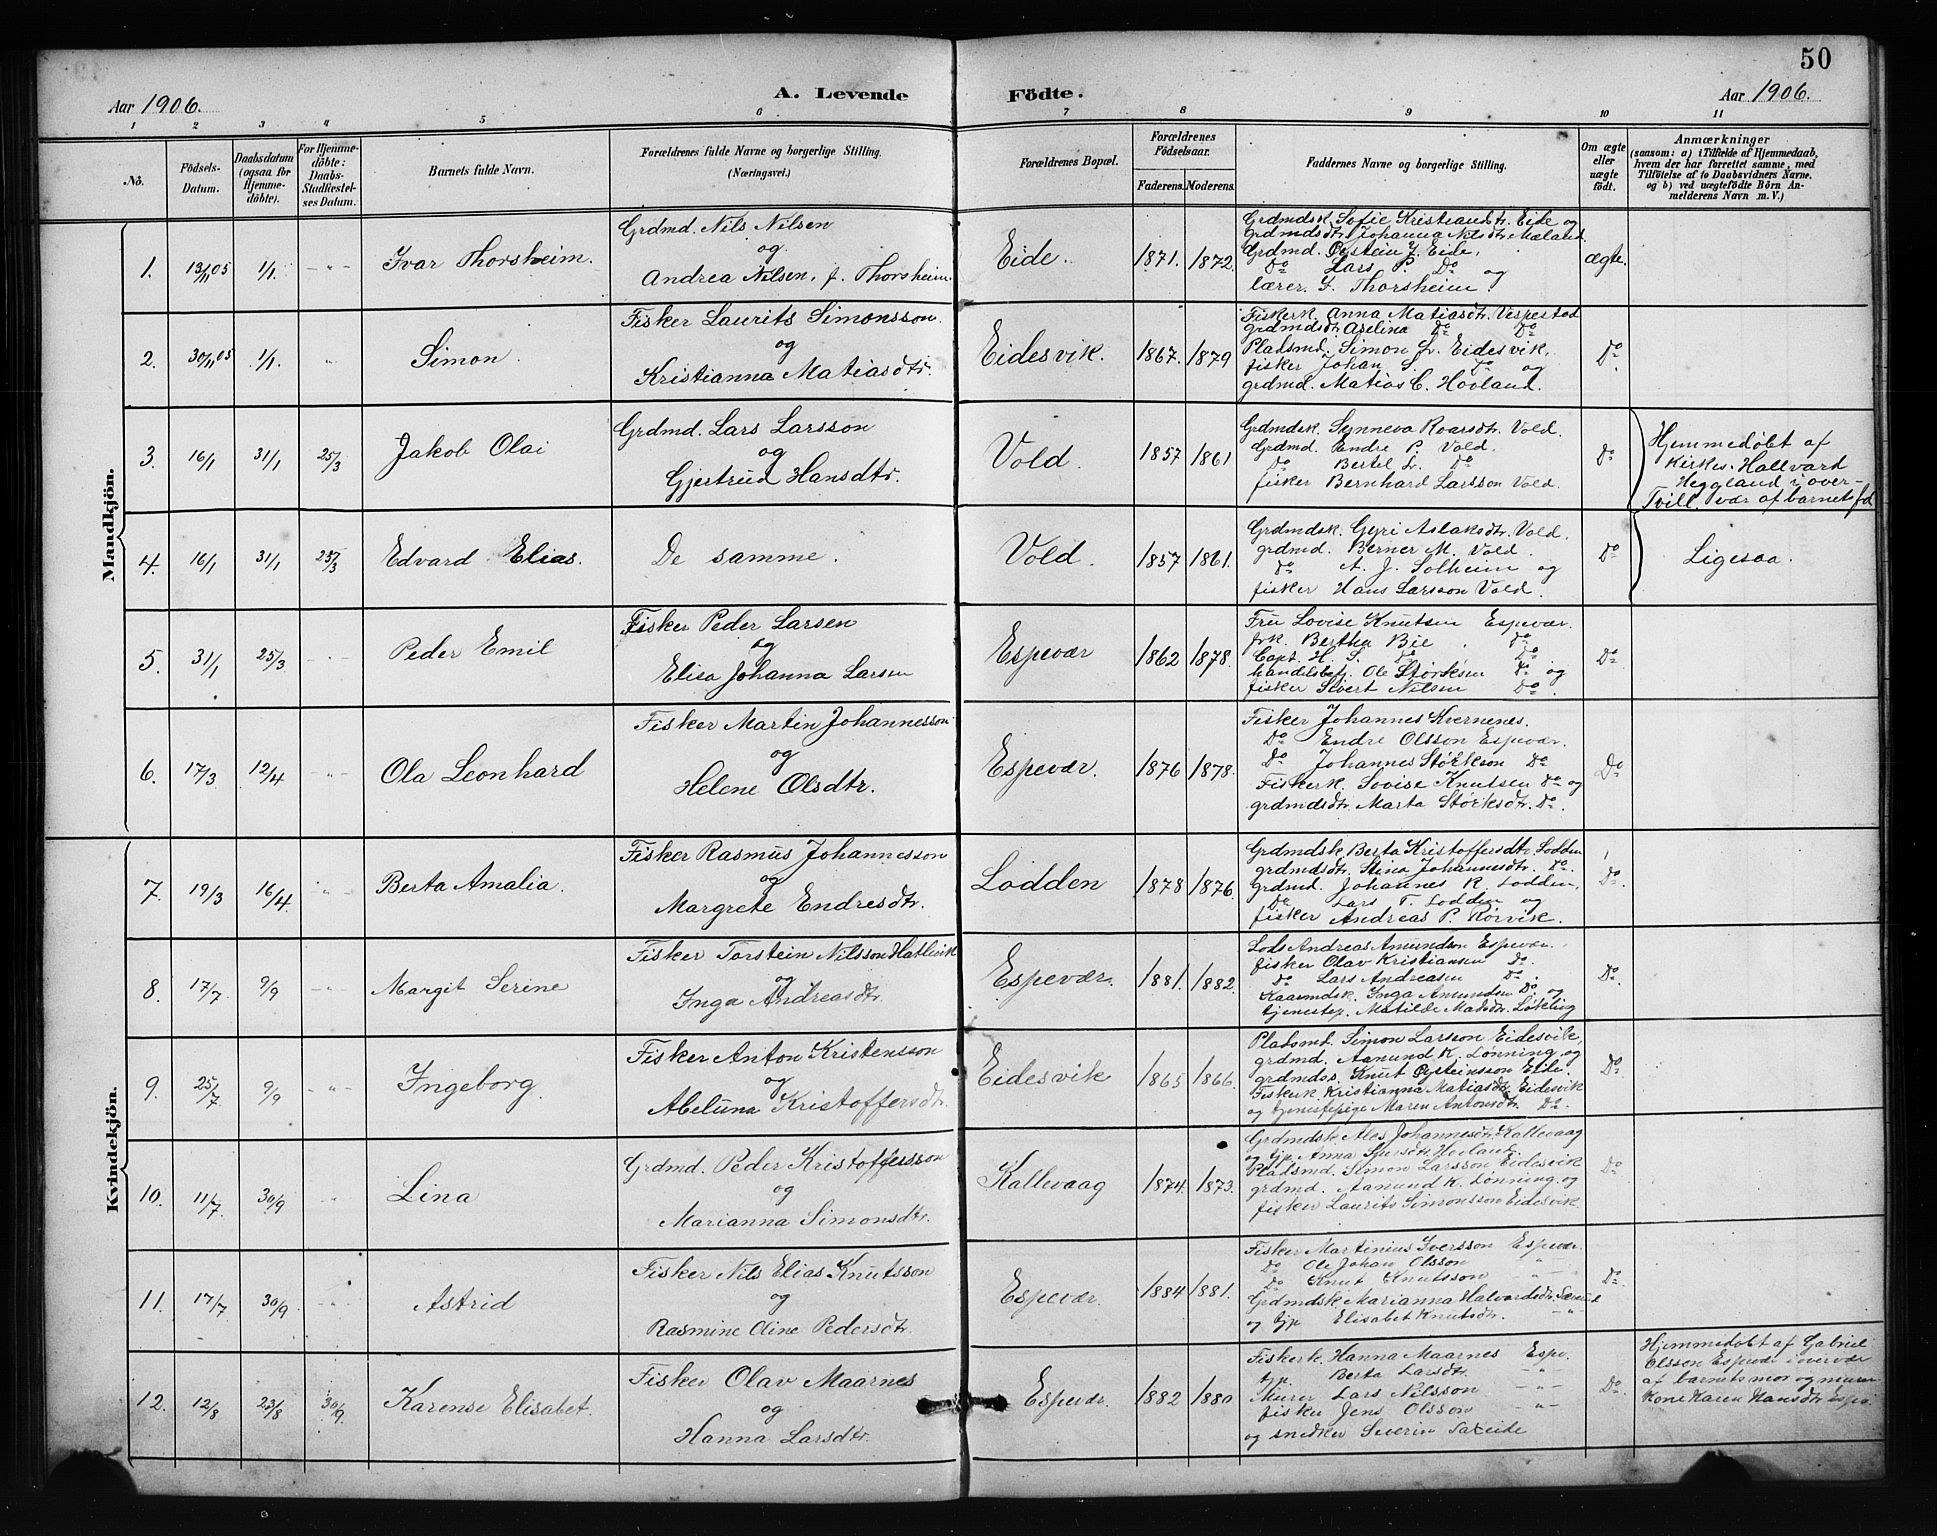 50
Aar 1906.
A. Levende Födte.
Aar 1906.
1 2 3 4 5 6 7 8 9 10 11
No.
Födsels-Datum.
Daabsdatum (ogsaa for Hjemmedöbte).
For Hjemmedöbte: Daabs-Stadfæstelses Datum.
Barnets fulde Navn.
Forældrenes fulde Navne og borgerlige Stilling.
(Næringsvei.)
Forældrenes Bopæl.
Forældrenes Födselsaar.
Faderens. Moderens.
Faddernes Navne og borgerlige Stilling.
Om ægte eller uægte födt.
Anmærkninger
(saasom: a) i Tilfælde af Hjemmedaab, hvem der har forrettet samme, med Tilföielse af to Daabsvidners Navne. og b) ved uægtefödte Börn Anmelderens Navn m. V.)
Mandkjön.
1. 13/11 05 1/1 -"- Ivar Thorsheim.
Grdmd. Nils Nilsen
og
Andrea Nilsen, f. Thorsheim
Eide. 1871. 1872.
Grdmdsk. Sofie Kristiandtr. Eide og
Grdmdsdtr. Johanna Nilsdtr. Mæland
Grdmd. Øystein J. Eide,
Do Lars P. Do og
lærer. S. Thorsheim.
ægte.
2. 30/11 05 1/1. " Simon.
Fisker Laurits Simonsson
og
Kristianna Matiasdtr.
Eidesvik. 1867. 1879
Fiskerk. Anna Matiasdtr. Vespestad
grdmdsdtr. Aselina Do Do
Pladsmd. Simon L. Eidesvik,
fisker Johan S. Do og
grdmd. Matias C. Hovland.
Do
3. 16/1 31/1 25/3 Jakob Olai
Grdmd. Lars Larsson
og
Gjertrud Hansdtr.
Vold. 1857 1861
Grdmdsk. Synneva Roarsdtr. Vold.
Grdmd. Endre P. Vold.
Do Bertel L. Do
fisker Bernhard Larsson Vold.
Do
Hjemmedøbt af
Kirkes. Hallvard
Heggland i over-
Tvill. vær af barnets fd
4. 16/1 31/1 25/3 Edvard Elias.
De samme.
Vold. 1857 1861.
Grdmdsk. Gyri Aslaksdtr. Vold,
grdmd. Berner M. Vold.
Do A. J. Solheim og
fisker Hans Larsson Vold.
Do
Ligesaa.
5. 31/1 25/3 -"- Peder Emil
Fisker Peder Larsen
og
Elisa Johanna Larsen
Espevær 1862 1878.
Fru Lovise Knutsen Espevær.
frk. Bertha Bie Do
Capt. H. S. Do Do
handelsbetj. Ole Størksen Do og
fisker Sivert Nilsen Do.
Do
6. 17/3 12/4 -"- Ola Leonhard
Fisker Martin Johannesson
og
Helene Olsdtr.
Espevær. 1876 1878.
Fisker Johannes Kvernenes.
Do Endre Olsson Espevær.
Do Johannes Størkson Do
Fiskerk. Lovise Knutsen Do og
grdmdsdtr. Marta Størksdtr. Do.
Do
Kvindekjön.
7. 19/3 16/4. Berta Amalia.
Fisker Rasmus Johannesson
og
Margrete Endresdtr.
Lodden 1878 1876.
Grdmdsk. Berta Kristoffersdtr. Lodden
grdmdsdtr. Stina Johannesdtr. Do.
grdmd. Johannes R. Lodden,
Do Lars T. Lodden og
fisker Andreas P. Rørvik.
Do.
8. 17/7. 9/9 -"- Margit Serine
Fisker Torstein Nilsson Hatlevik
og
Inga Andreasdtr.
Espevær. 1881. 1882.
Lods Andreas Amundson Espevær.
fisker Olav Kristiansen Do.
Do Lars Andreasen Do.
Kaarmdsk. Inga Amundsen Do. og
tjenestep. Matilde Madsdtr. Løkling
Do.
9. 25/7. 9/9 -"- Ingeborg.
Fisker Anton Kristensson
og
Abeluna Kristoffersdtr.
Eidesvik 1865 1866.
Pladsmd. Simon Larsson Eidesvik,
grdmd. Aamund K. Lønning og
grdmds. Knut Øysteinsson Eide.
Fiskerk. Kristianna Matiasdtr. Eidesvik
og tjenestepige Maren Antonsdtr. Do.
Do.
10. 11/7. 30/9 Lina
Grdmd. Peder Kristoffersson
og
Marianna Simonsdtr.
Kallevaag 1874. 1873.
Grdmdsk. Johannesdtr. Kallevaag
og tjp. Anna Hovland.
Pladsmd. Simon Larsson Eidesvik
grdmd. Aamund K. Lønning og
fisker Laurits Simonsson Eidesvik.
Do
11. 17/7 30/9 -"- Astrid
Fisker Nils Elias Knutsson
og
Rasmine Oline Pedersdtr.
Espevær. 1884 1881.
Fisker Martinius Iversson Espevær.
Do Ole Johan Olsson -"-
Do Knut Knutsson -"-
Grdmdsk Marianna Halvardsdtr.
og tjp Elisabet Knutsdtr. -"-
Do
12. 12/8 23/8 30/9. Karense Elisabet.
Fisker Olav Maarnes
og
Hanna Larsdtr.
Espevær. 1882 1880.
Fiskerk. Hanna Maarnes Espv.
tjp. Berta Larsdtr. -"-
Murer Lars Nilsson -"-
fisker Jens Olsson -"-
og snedker Severin Sæleide
Do
Hjemmedøbt af Gabriel
Olssen Espevær i overvær
af barnets mor og murer
kone Karen Hansdtr. Espv.